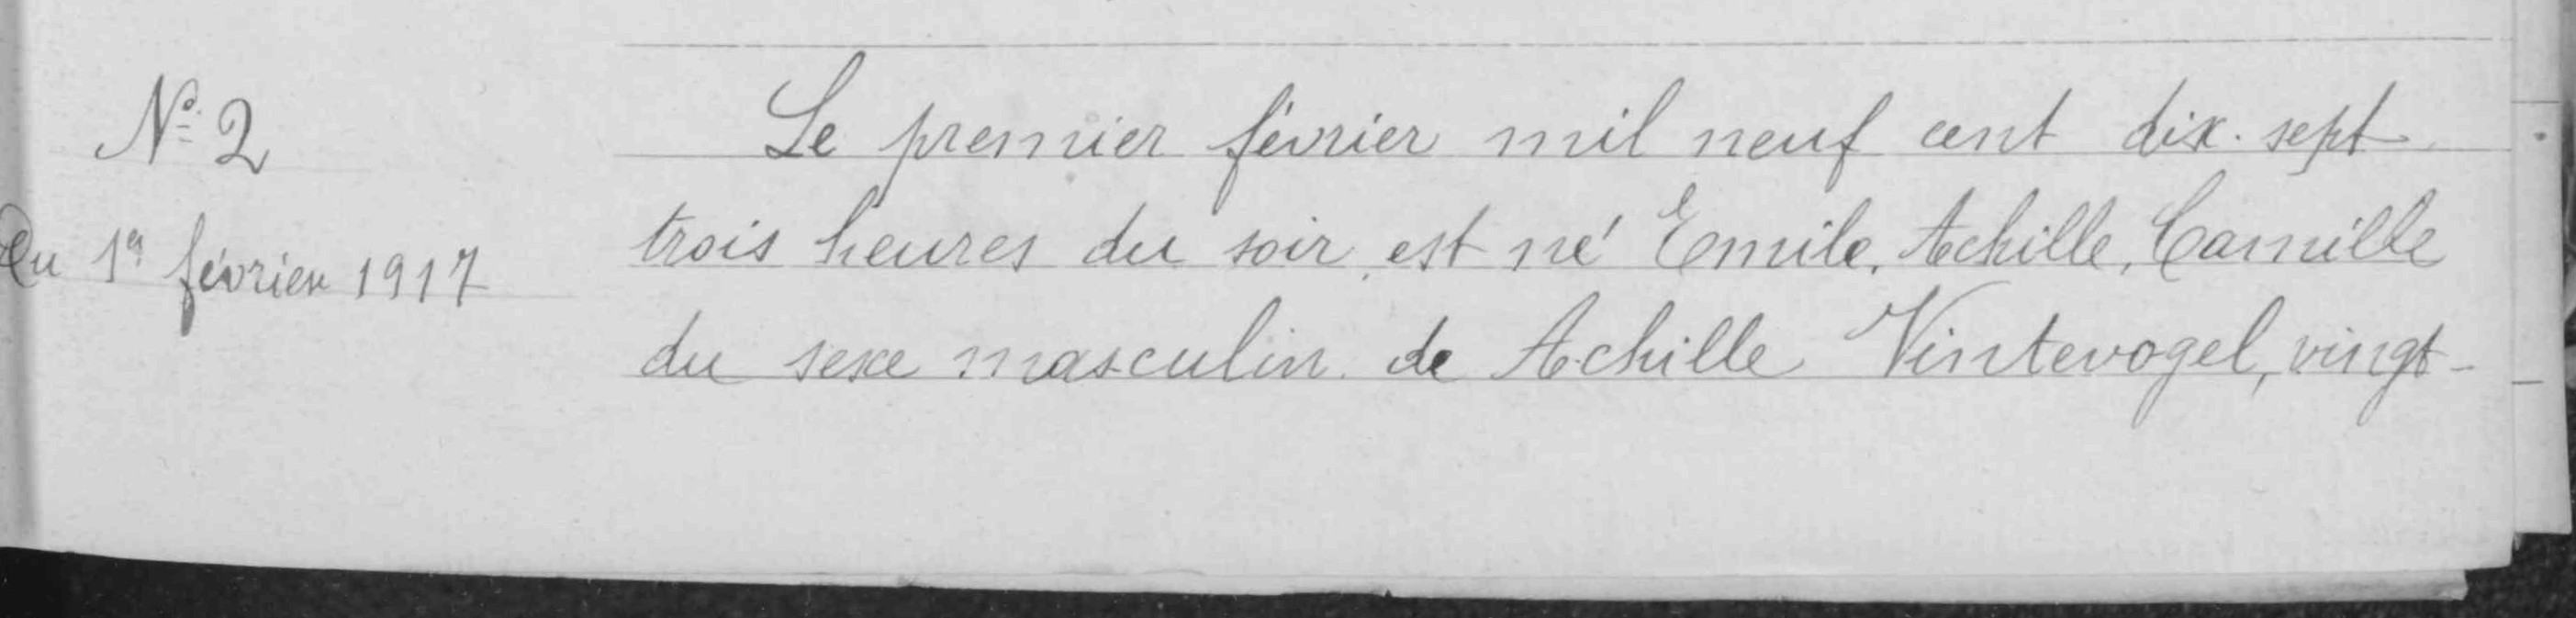 N° 2
Du 1er février 1917
Le premier février mil neuf cent dix-sept
trois heures du soir, est né Emile, Achille, Camille
du sexe masculin de Achille Vintevogel, vingt-